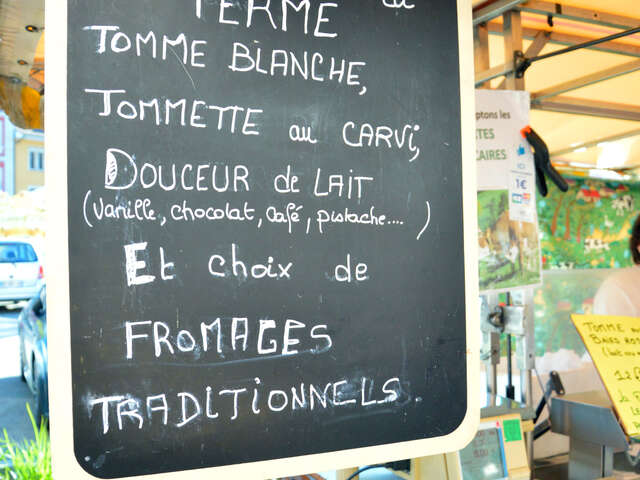 FERME au
TOMME BLANCHE,
TOMMETTE au CARVI,
DOUCEUR de LAIT
(vanille, chocolat, café, pistache....)
Et choix de
FROMAGES
TRADITIONNELS.
ptons les
CAIRES
1€
TOMME au